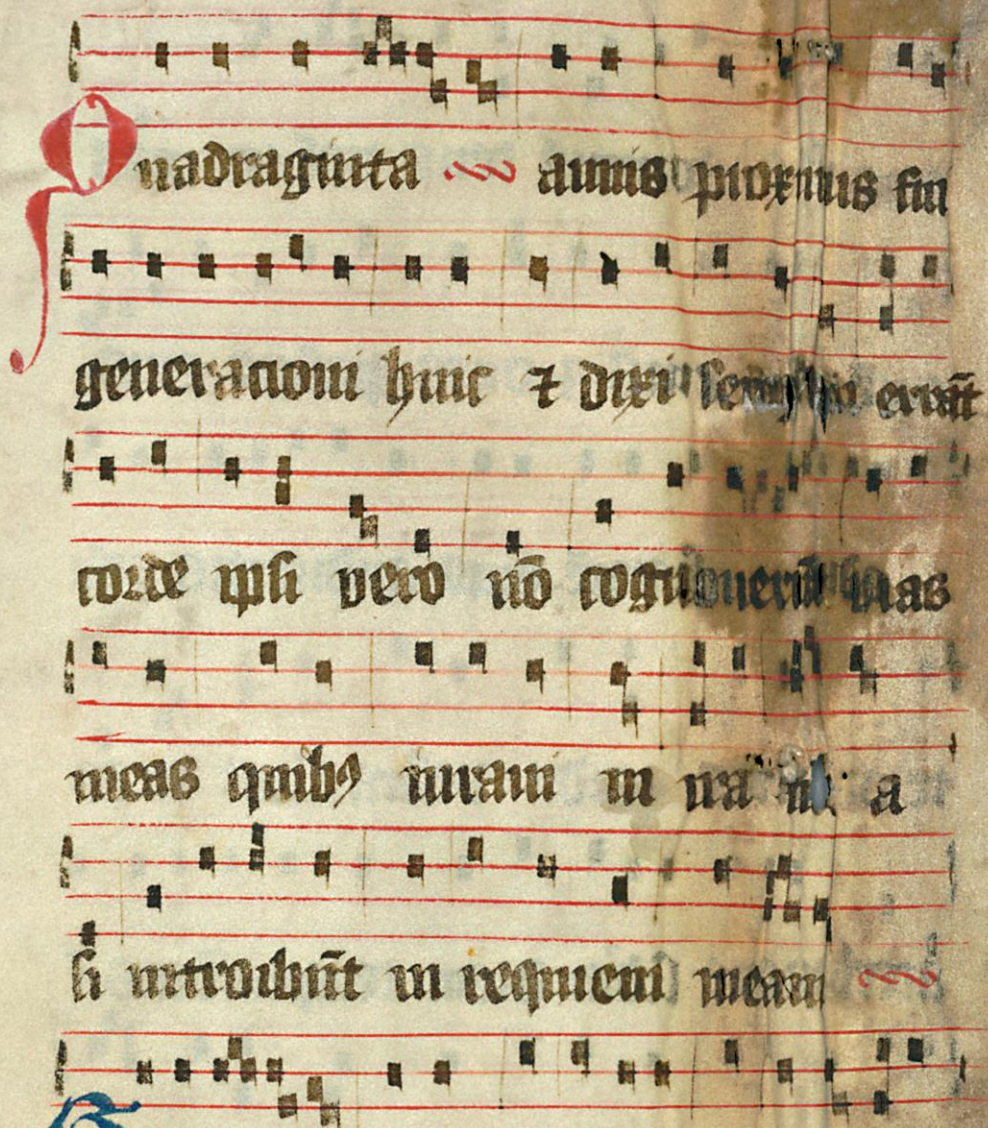 Quadraginta annis proximus fui
generacioni huic ⁊ dixi semper errāt
corde ipsi vero nō cognouerūt vias
meas quibꝯ iuraui in ira a
si introibūt in requiem meam